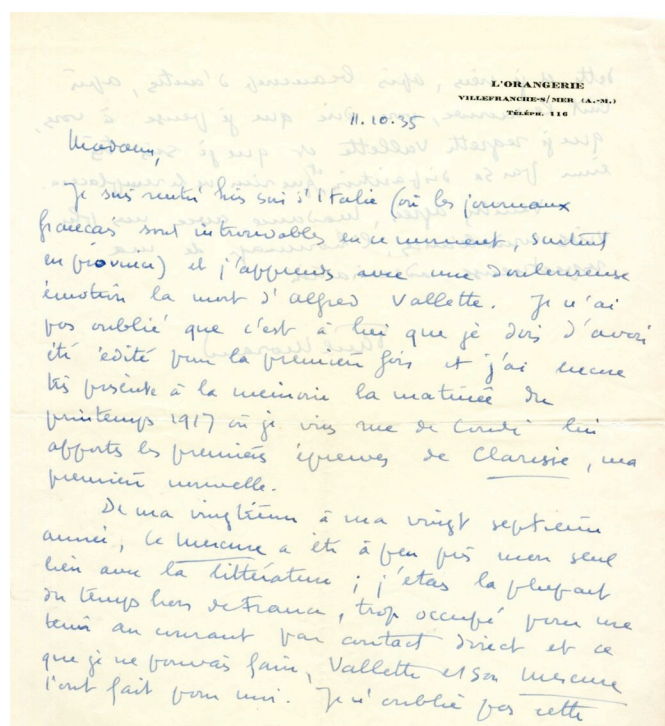 L'ORANGERIE
VILLEFRANCHE-S/MER (A.-M.)
TÉLÉPH. 116
11.10.35
Madame,
Je suis rentré hier soir d'Italie (où les journaux
français sont introuvables en ce moment, surtout
en province) et j'apprends avec une douloureuse
émotion la mort d'Alfred Vallette. Je n'ai
pas oublié que c'est à lui que je dois d'avoir
été édité pour la première fois et j'ai encore
très présente à la mémoire la matinée du
printemps 1917 où je vins rue de Condé lui
apporter les premières épreuves de Clarisse, ma
première nouvelle.
De ma vingtième à ma vingt septième
année, le Mercure a été à peu près mon seul
lien avec la littérature ; j'étais la plupart
du temps hors de France, trop occupé pour me
tenir au courant par contact direct et ce
que je ne pouvais faire, Vallette et son Mercure
l'ont fait pour moi. Je n'oublie pas cette